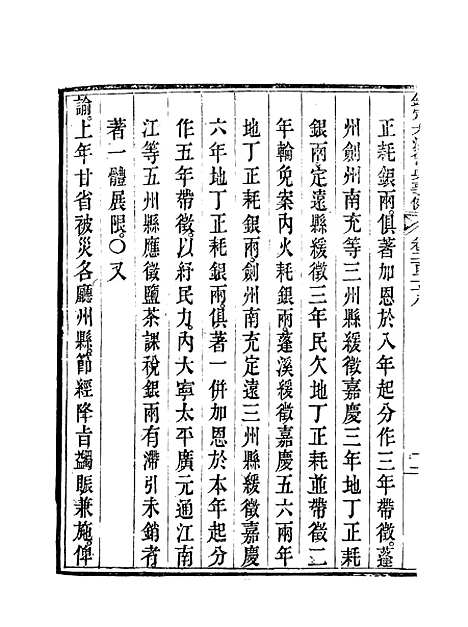 正耗銀兩俱著加恩於八年起分作三年帶徵蓬
州劍州南充等三州縣緩徵嘉慶三年地丁正耗
銀兩定遠縣緩徵三年民欠地丁正耗並帶徵二
年輪免案內火耗銀兩蓬溪緩徵嘉慶五六兩年
地丁正耗銀兩劍州南充定遠三州縣緩徵嘉慶
六年地丁正耗銀兩俱著一併加恩於本年起分
作五年帶徵以紓民力內大寧太平廣元通江南
江等五州縣應徵鹽茶課稅銀兩有滯引未銷者
著一體展限○又
諭上年甘省被災各廳州縣節經降旨蠲賑兼施俾